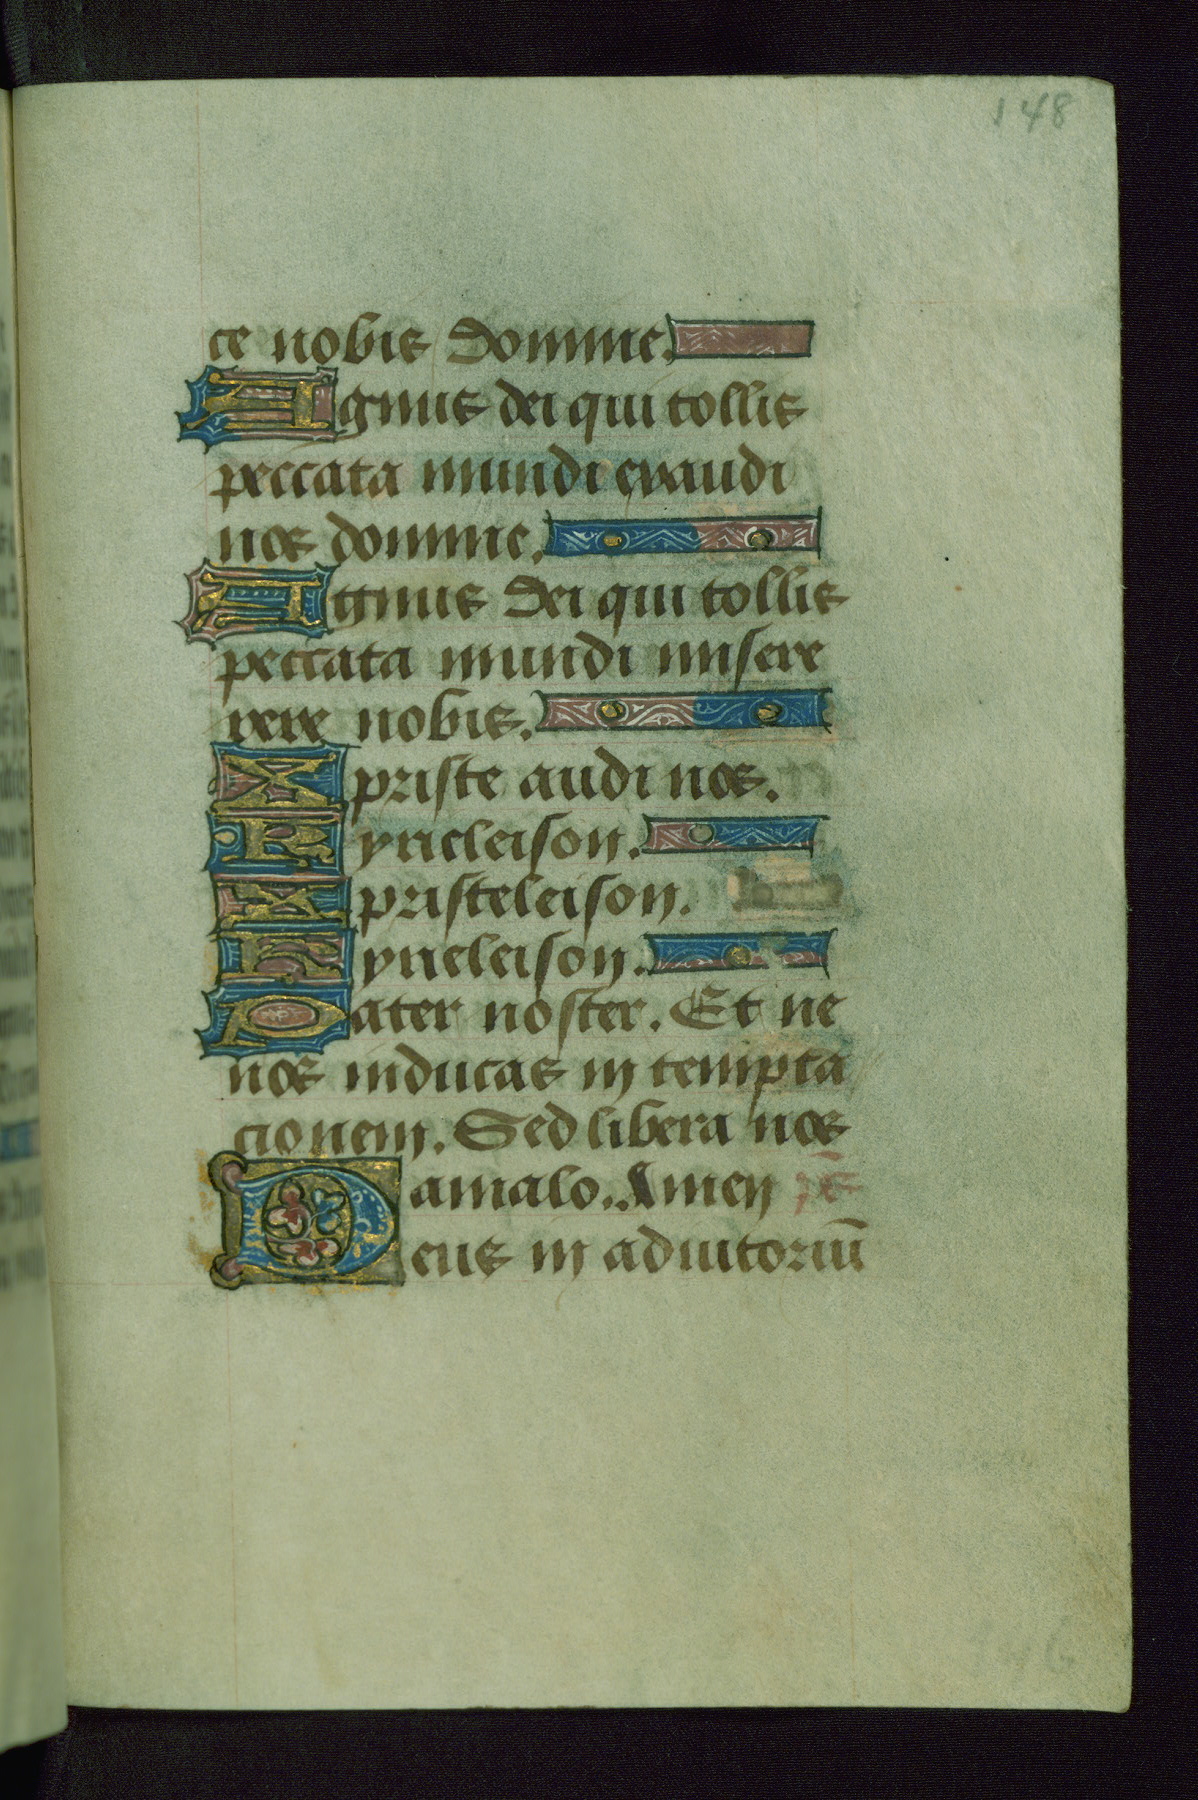 148
ce nobis domine.
Agnus dei qui tollis
peccata mundi exaudi
nos domine.
Agnus dei qui tollis
peccata mundi misere
rere nobis.
Xpriste audi nos.
Kyrieleison.
Xpristeleison.
Kyrieleison.
Pater noster. Et ne
nos inducas in tempta
cionem. Sed libera nos
amalo. Amen ps̄
Deus in adiutoriū